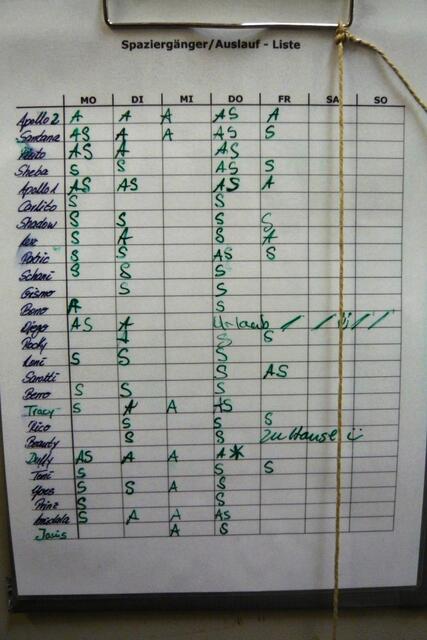 Spaziergänger/Auslauf - Liste
MO DI MI DO FR SA SO
Apollo 2 A A A AS A
Santana AS A A AS S
AS A AS
Sheba S S AS S
Apollo 1 AS AS AS A
Carlito S S
Shadow S S S S
S A S A
S S AS S
Schani S S S
Gismo S S
Beno A S
Diego AS A Urlaub / / /
Rocky S S
Leni S S S
Saretti S AS
Berro S S S
Tracy S A A AS
Rico S S S
Beauty S S zu Hause
Duffy AS A A A*
Toni S S S
S S A S
Prinz S S
S A A AS
Janis A S